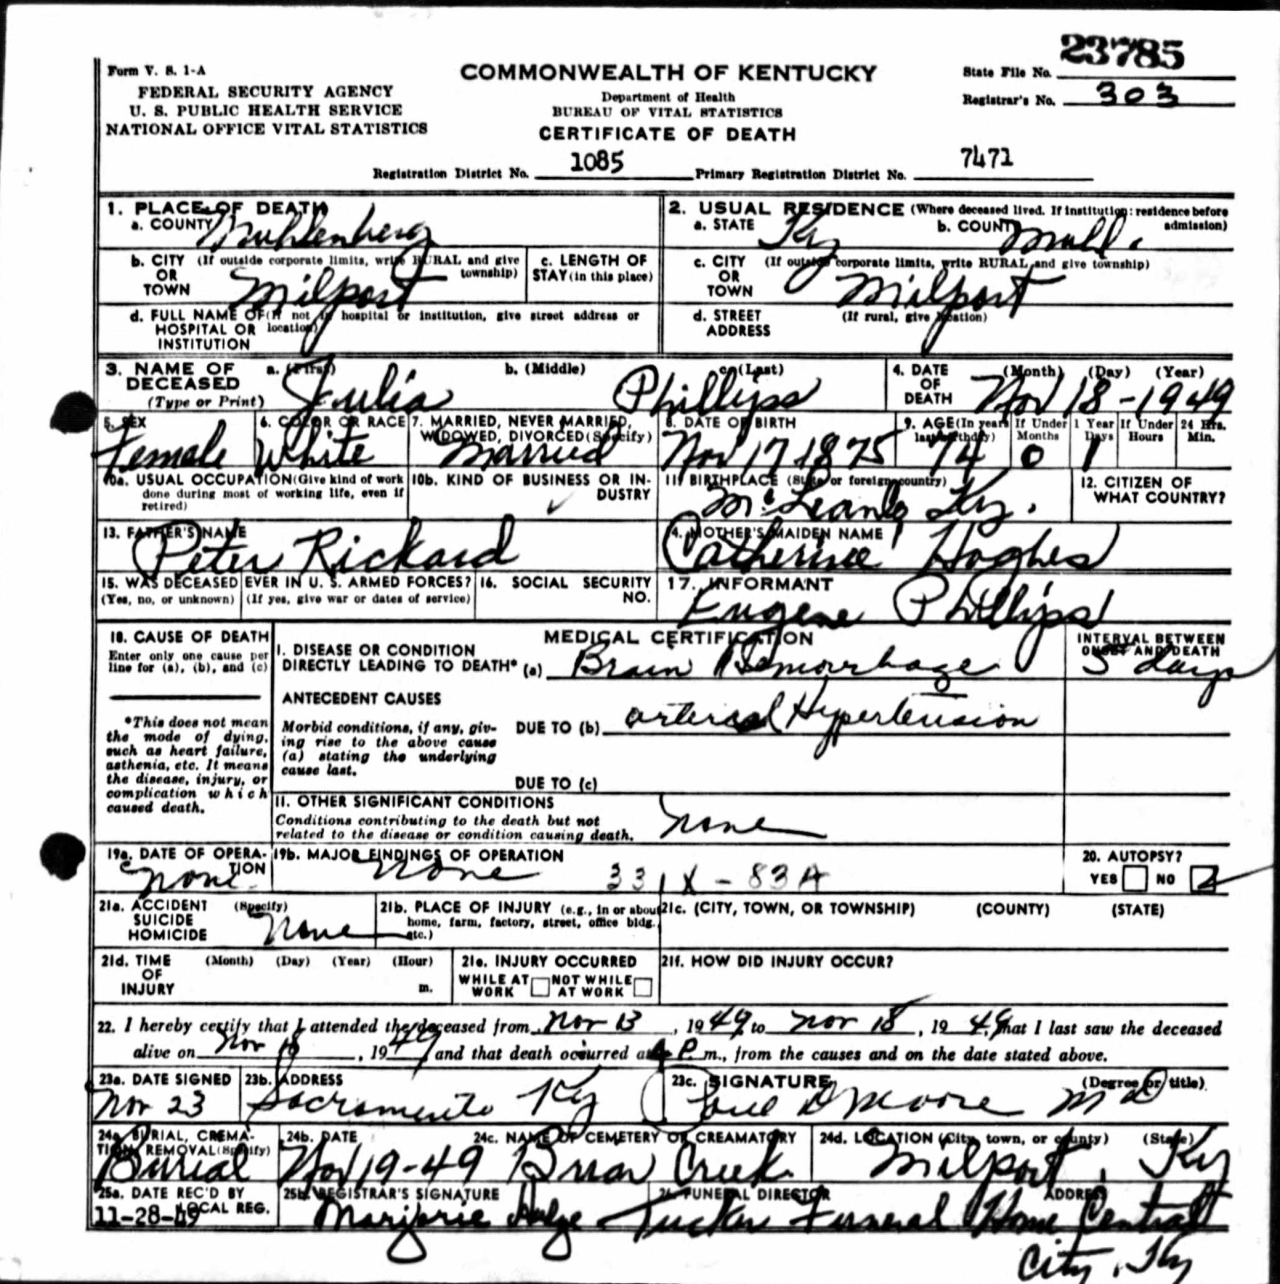 23785
Form V. S. 1-A
COMMONWEALTH OF KENTUCKY
State File No.
FEDERAL SECURITY AGENCY
Department of Health
Registrar's No. 303
U. S. PUBLIC HEALTH SERVICE
BUREAU OF VITAL STATISTICS
NATIONAL OFFICE VITAL STATISTICS
CERTIFICATE OF DEATH
Registration District No. 1085 Primary Registration District No. 7471
1. PLACE OF DEATH
a. COUNTY Muhlenberg
b. CITY (If outside corporate limits, write RURAL and give township)
OR
TOWN Milport
c. LENGTH OF
STAY (in this place)
d. FULL NAME OF (If not in hospital or institution, give street address or location)
HOSPITAL OR
INSTITUTION
2. USUAL RESIDENCE (Where deceased lived. If institution: residence before admission)
a. STATE Ky b. COUNTY Muhl.
c. CITY (If outside corporate limits, write RURAL and give township)
OR
TOWN Milport
d. STREET (If rural, give location)
ADDRESS
3. NAME OF DECEASED (Type or Print) a. (First) Julia b. (Middle) c. (Last) Phillips
4. DATE OF DEATH (Month) (Day) (Year) Nov 18-1949
5. SEX Female
6. COLOR OR RACE White
7. MARRIED, NEVER MARRIED, WIDOWED, DIVORCED (Specify) Married
8. DATE OF BIRTH Nov 17 1875
9. AGE (In years last birthday) 74 If Under 1 Year Months 0 Days 1 If Under 24 Hrs. Hours Min.
10a. USUAL OCCUPATION (Give kind of work done during most of working life, even if retired)
10b. KIND OF BUSINESS OR INDUSTRY
11. BIRTHPLACE (State or foreign country) McLean Ky.
12. CITIZEN OF WHAT COUNTRY?
13. FATHER'S NAME Peter Rickard
14. MOTHER'S MAIDEN NAME Catherine Hughes
15. WAS DECEASED EVER IN U. S. ARMED FORCES?
(Yes, no, or unknown) (If yes, give war or dates of service)
16. SOCIAL SECURITY NO.
17. INFORMANT Eugene Phillips
18. CAUSE OF DEATH
Enter only one cause per
line for (a), (b), and (c)
*This does not mean
the mode of dying,
such as heart failure,
asthenia, etc. It means
the disease, injury, or
complication which
caused death.
MEDICAL CERTIFICATION
INTERVAL BETWEEN ONSET AND DEATH
I. DISEASE OR CONDITION
DIRECTLY LEADING TO DEATH* (a) Brain Hemorrhage 5 days
ANTECEDENT CAUSES
Morbid conditions, if any, giving rise to the above cause (a) stating the underlying cause last.
DUE TO (b) arterial Hypertension
DUE TO (c)
II. OTHER SIGNIFICANT CONDITIONS
Conditions contributing to the death but not
related to the disease or condition causing death. none
19a. DATE OF OPERATION none
19b. MAJOR FINDINGS OF OPERATION none
331X - 83A
20. AUTOPSY?
YES NO
21a. ACCIDENT SUICIDE HOMICIDE (Specify) None
21b. PLACE OF INJURY (e.g., in or about home, farm, factory, street, office bldg. etc.)
21c. (CITY, TOWN, OR TOWNSHIP) (COUNTY) (STATE)
21d. TIME OF INJURY (Month) (Day) (Year) (Hour) m.
21e. INJURY OCCURRED
WHILE AT WORK NOT WHILE AT WORK
21f. HOW DID INJURY OCCUR?
22. I hereby certify that I attended the deceased from Nov 13, 1949, to Nov 18, 1949, that I last saw the deceased
alive on Nov 18, 1949, and that death occurred at P m., from the causes and on the date stated above.
23a. DATE SIGNED Nov 23
23b. ADDRESS Sacramento Ky
23c. SIGNATURE (Degree or title) Moore MD
24a. BURIAL, CREMATION, REMOVAL (Specify) Burial
24b. DATE Nov 19-49
24c. NAME OF CEMETERY OR CREAMATORY Briar Creek
24d. LOCATION (City, town, or county) (State) Milport, Ky
25a. DATE REC'D BY LOCAL REG. 11-28-49
25b. REGISTRAR'S SIGNATURE Marjorie
26. FUNERAL DIRECTOR ADDRESS Tucker Funeral Home Central
City, Ky